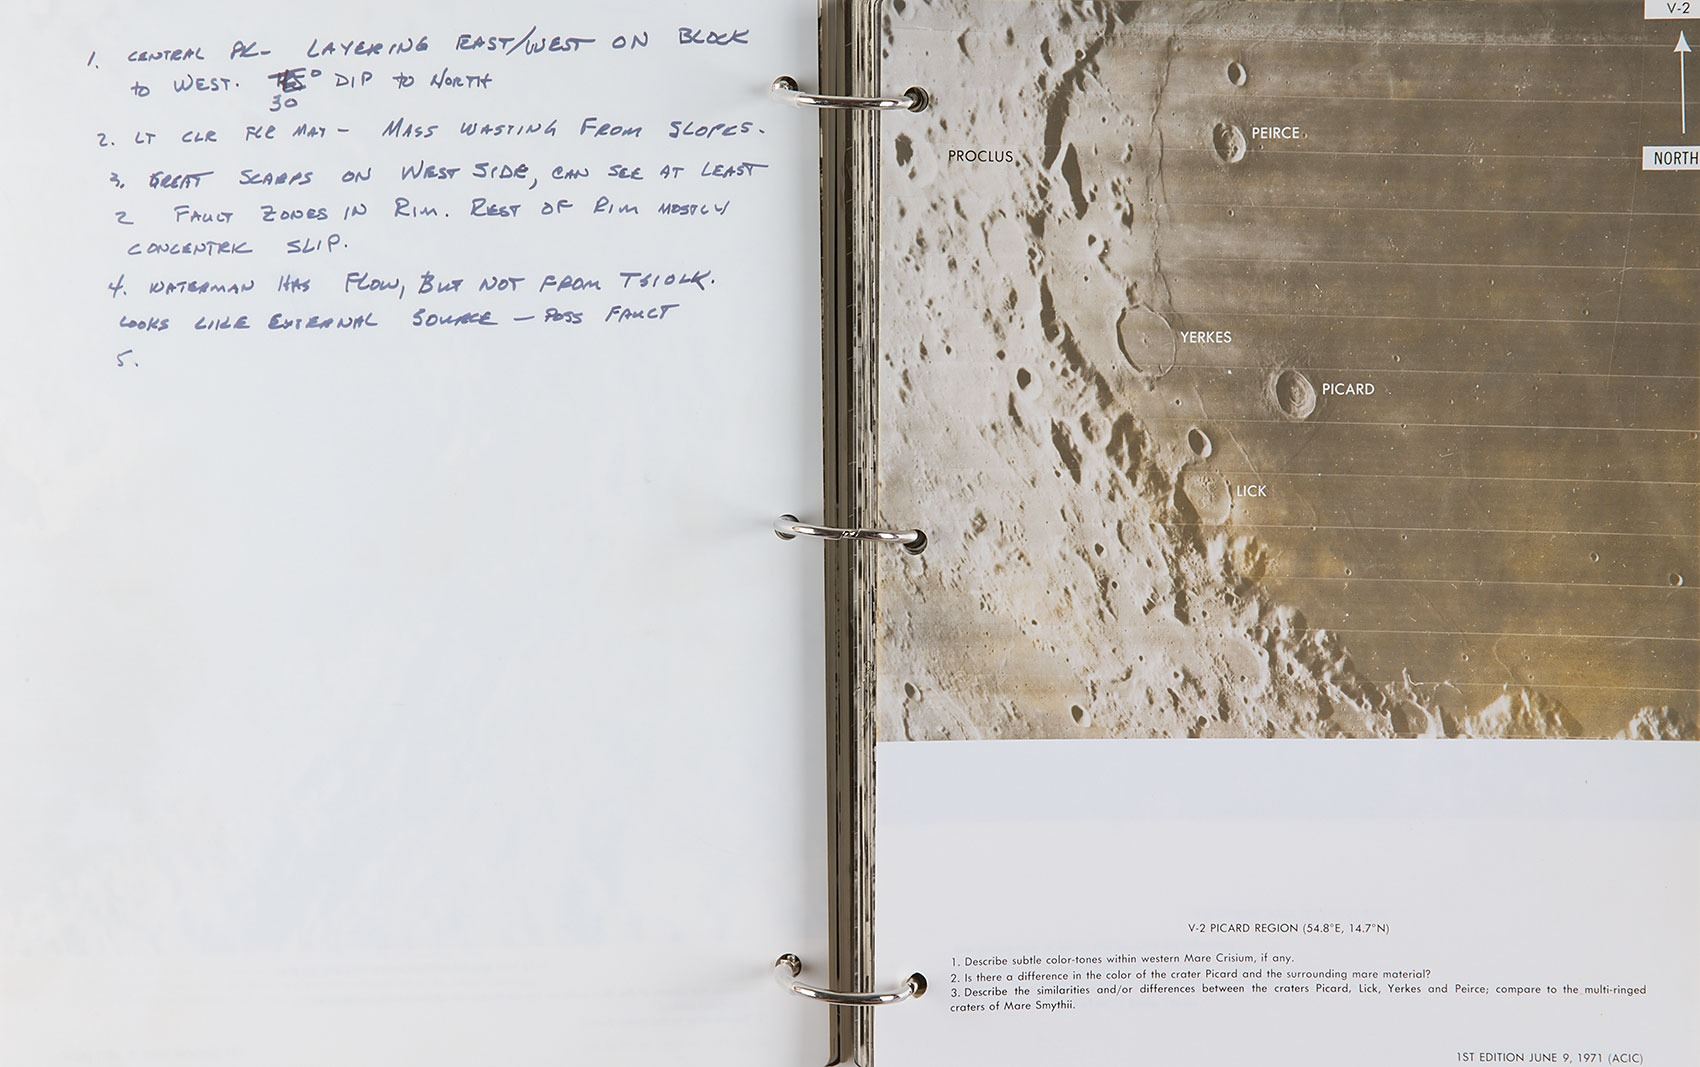 1. CENTRAL PK- LAYERING EAST/WEST ON BLOCK
to WEST. ° DIP to NORTH
30
2. LT CLR FLR MAT - MASS WASTING FROM SLOPES.
3. GREAT SCARPS ON WEST SIDE, CAN SEE AT LEAST
2 FAULT ZONES IN RIM. REST OF RIM MOSTLY
CONCENTRIC SLIP.
4. WATERMAN HAS FLOW, BUT NOT FROM TSIOLK.
LOOKS LIKE EXTERNAL SOURCE - POSS FAULT
5.
V-2
NORTH
PEIRCE
PROCLUS
YERKES
PICARD
LICK
V-2 PICARD REGION (54.8°E, 14.7°N)
1. Describe subtle color-tones within western Mare Crisium, if any.
2. Is there a difference in the color of the crater Picard and the surrounding mare material?
3. Describe the similarities and/or differences between the craters Picard, Lick, Yerkes and Peirce; compare to the multi-ringed
craters of Mare Smythii.
1ST EDITION JUNE 9, 1971 (ACIC)